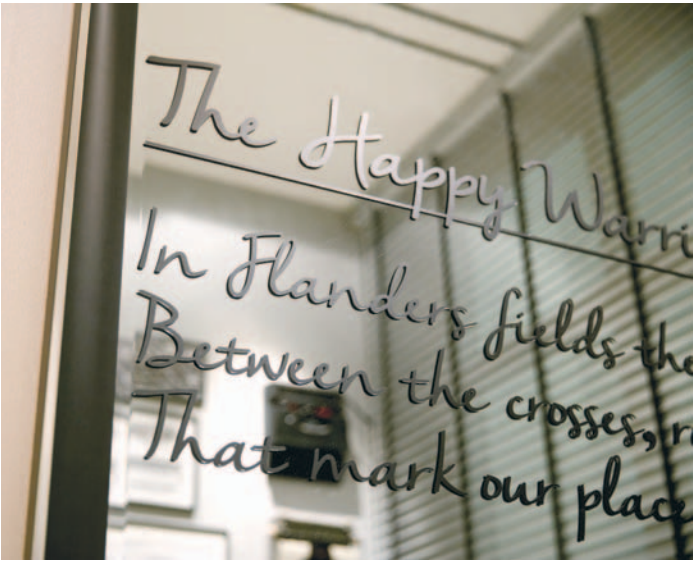 The Happy Warri
In Flanders fields the
Between the crosses, r
That mark our place